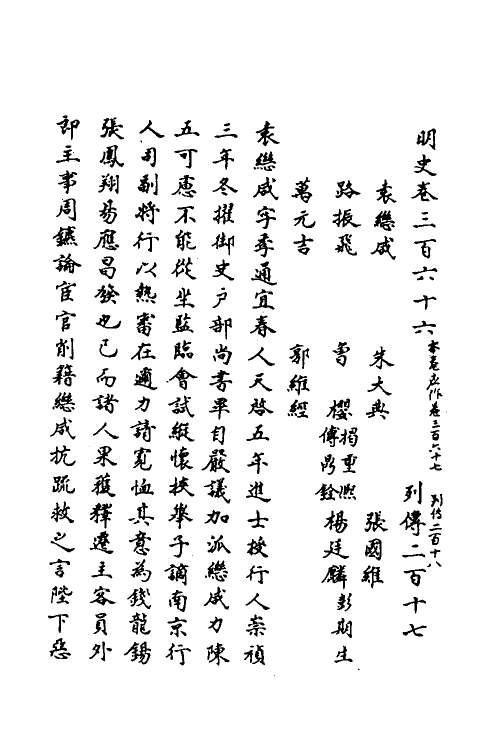 明史卷三百六十六 本卷应作卷三百六十七
列傳二百十七 列传二百十八
袁繼咸 朱大典 張國維
路振飛 曾櫻 揭重熙 傅鼎銓 楊廷麟 彭期生
萬元吉 郭維經
袁繼咸字季通宜春人天啓五年進士授行人崇禎
三年冬擢御史户部尚書畢自嚴議加派繼咸力陳
五可慮不能從坐監臨會試縱懷挾舉子謫南京行
人司副將行以熱審在邇力請寬恤其意為錢龍錫
張鳳翔易應昌發也已而諸人果獲釋遷主客員外
郎主事周鑣論宦官削籍繼咸抗疏救之言陛下惡